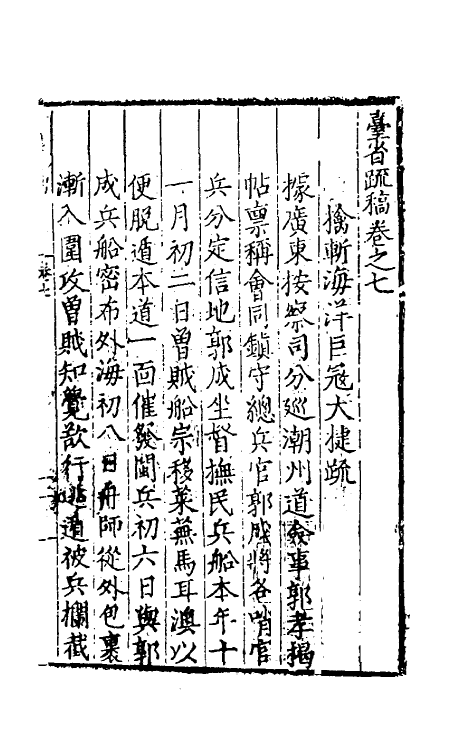 臺省疏稿卷之七
擒斬海洋巨寇大捷疏
據廣東按察司分巡潮州道僉事郭孝揭
帖禀稱會同鎮守總兵官郭成將各哨官
兵分定信地郭成坐督撫民兵船本年十
一月初二日曾賊船宗移萊蕪馬耳澳以
便脫遁本道一面催發閩兵初六日與郭
成兵船密布外海初八日舟師從外包裹
漸入圍攻曾賊知覺欲行遁被兵攔截